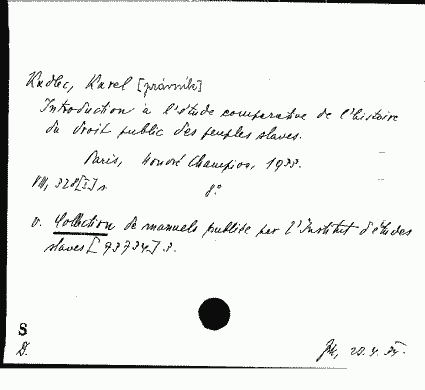 Kadlec, Karel [právník]
Introduction à l'étude comparative de l'histoire
du droit public des peuples slaves.
Paris, Honoré Champion, 1933.
VIII, 328[I] s. 8°
v. Collection de manuels publiée par l'Institut d'études
slaves [93734] 3.
S
D. 20. 4.